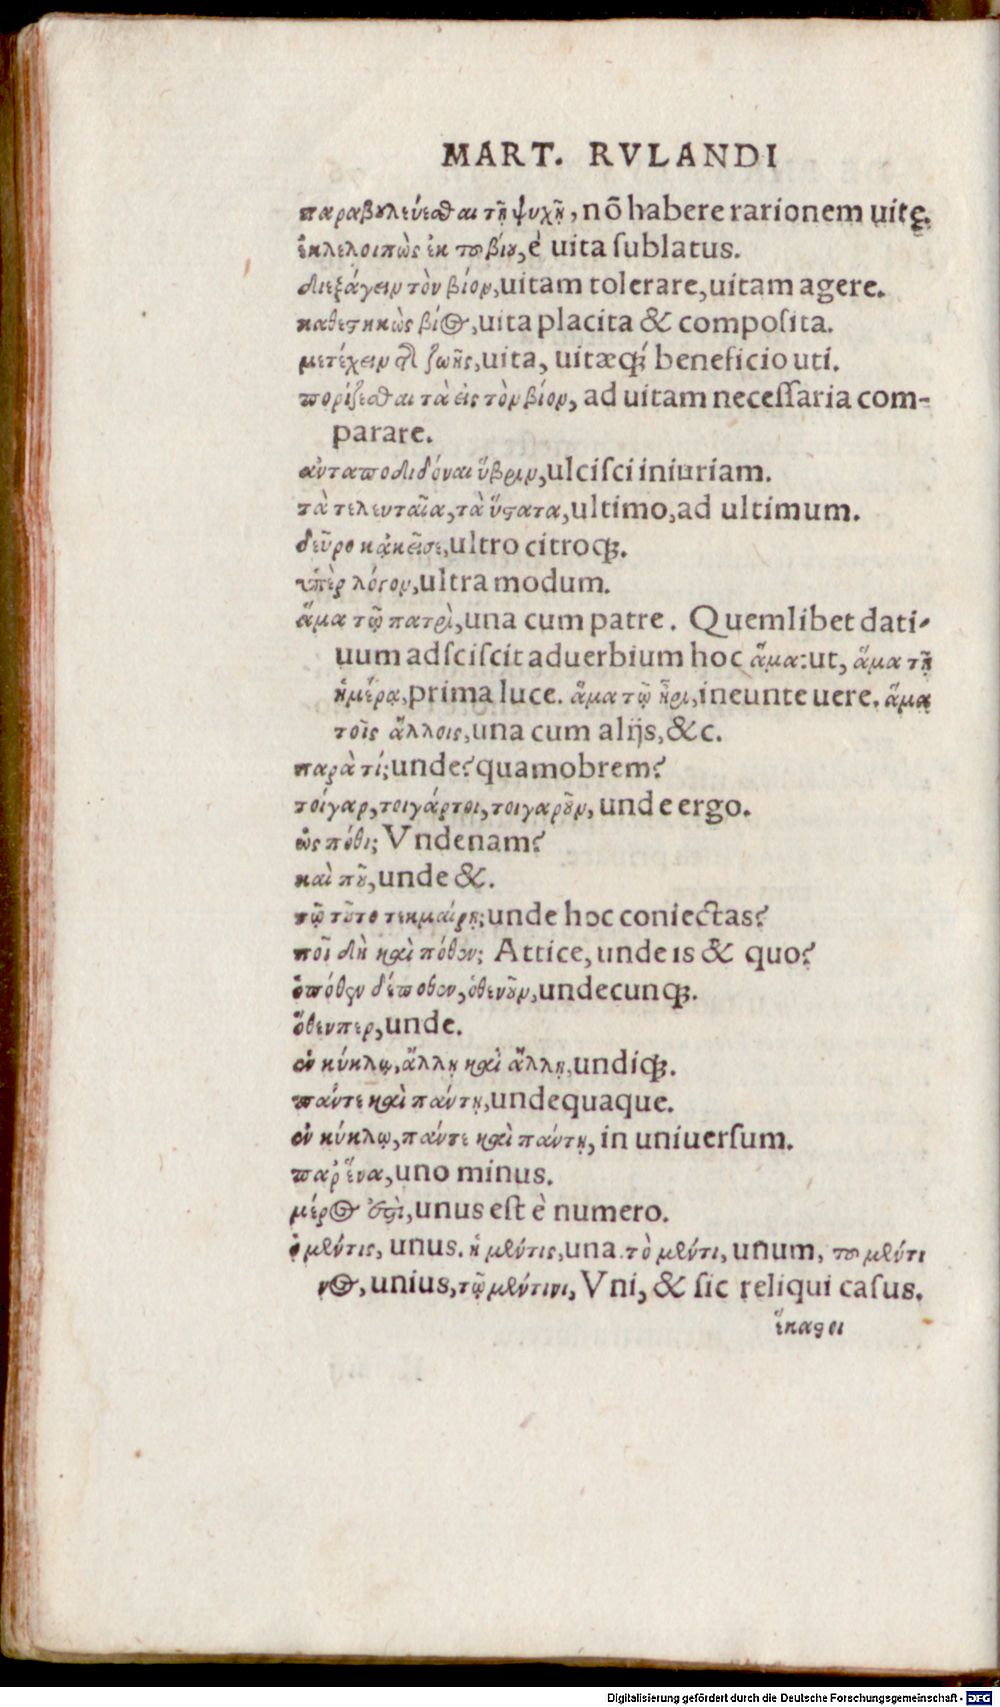 MART. RVLANDI
παραβουλεύεσθαι τῇ ψυχῇ, nō habere rarionem uitę.
ἐκλελοιπὼς ἐκ τοῦ βίου, è uita sublatus.
διεξάγειν τὸν βίον, uitam tolerare, uitam agere.
καθεστηκὼς βίος, uita placita & composita.
μετέχειν τῆς ζωῆς, uita, uitæq́ꝫ beneficio uti.
πορίζεσθαι τὰ εἰς τὸν βίον, ad uitam necessaria com-
parare.
ἀνταποδιδόναι ὕβριν, ulcisci iniuriam.
τὰ τελευταῖα, τὰ ὕστατα, ultimo, ad ultimum.
δεῦρο κᾀκεῖσε, ultro citroqꝫ.
ὑπὲρ λόγον, ultra modum.
ἅμα τῷ πατρὶ, una cum patre. Quemlibet dati-
uum adsciscit aduerbium hoc ἅμα: ut, ἅμα τῇ
ἡμέρᾳ, prima luce. ἅμα τῷ ἦρι, ineunte uere. ἅμα
τοῖς ἄλλοις, una cum alijs, &c.
παρὰ τί; unde? quamobrem?
τοίγαρ, τοιγάρτοι, τοιγαροῦν, unde ergo.
ὡς πόθι; Vndenam?
καὶποῦ, unde &.
πῷ τοῦτο τεκμαίρῃ; unde hoc coniectas?
ποῖ δὴ καὶ πόθεν; Attice, unde is & quo?
ὁπόθεν δέποθεν, ὁθενοῦν, undecunqꝫ.
ὅθενπερ, unde.
ἐν κύκλῳ, ἄλλῃ καὶ ἄλλῃ, undiqꝫ.
πάντε καὶ πάντῃ, undequaque.
ἐν κύκλῳ, πάντε καὶ πάντῃ, in uniuersum.
παρ' ἕνα, uno minus.
μέρος ἐστὶ, unus est è numero.
ὁ μέντις, unus. ἡ μέντις, una. τὸ μέντι, unum, τοῦ μέντι
νος, unius, τῷ μέντινι, Vni, & sic reliqui casus.
ἕκαστοι
Digitalisierung gefördert durch die Deutsche Forschungsgemeinschaft - DFG